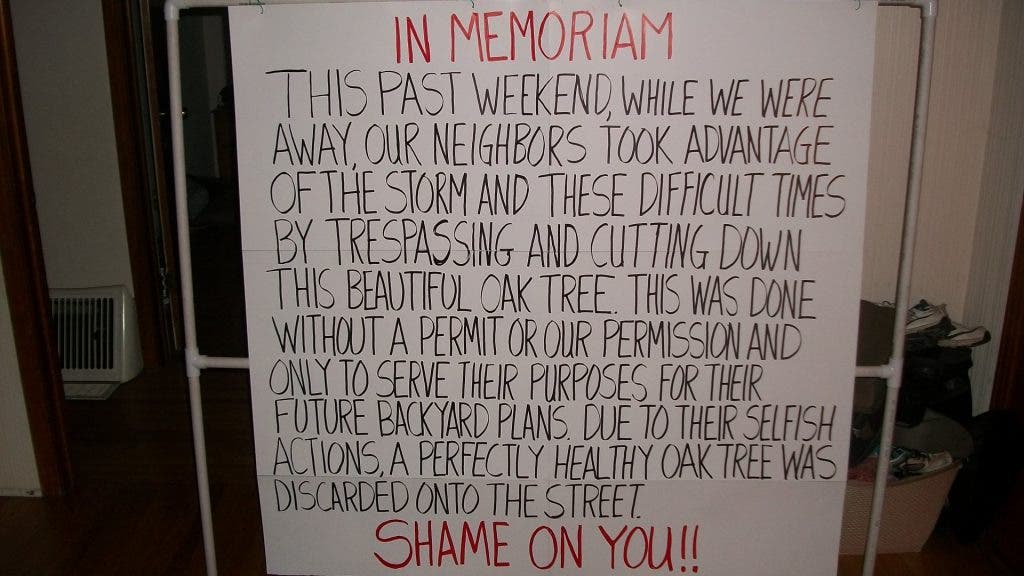 IN MEMORIAM
THIS PAST WEEKEND, WHILE WE WERE
AWAY, OUR NEIGHBORS TOOK ADVANTAGE
OF THE STORM AND THESE DIFFICULT TIMES
BY TRESPASSING AND CUTTING DOWN
THIS BEAUTIFUL OAK TREE. THIS WAS DONE
WITHOUT A PERMIT OR OUR PERMISSION AND
ONLY TO SERVE THEIR PURPOSES FOR THEIR
FUTURE BACKYARD PLANS. DUE TO THEIR SELFISH
ACTIONS, A PERFECTLY HEALTHY OAK TREE WAS
DISCARDED ONTO THE STREET.
SHAME ON YOU!!